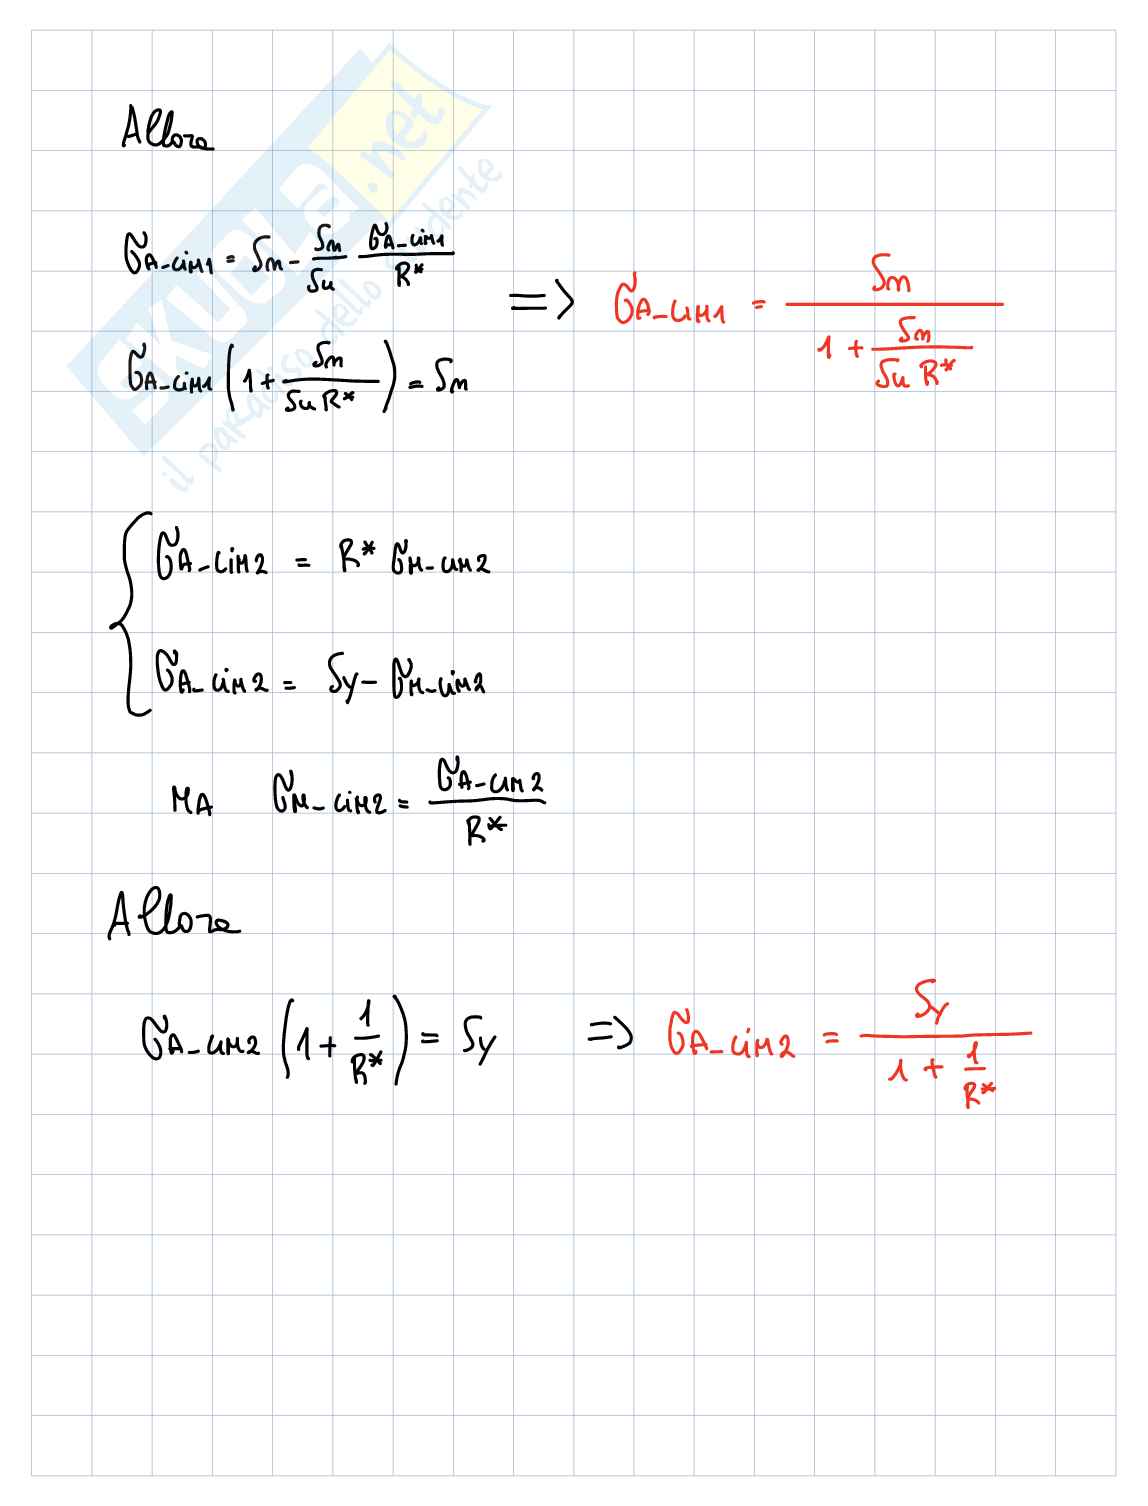 Allora
σA-LIM1 = Sn - Sn/Su σA-LIM1/R*
σA-LIM1 (1 + Sn/(Su R*)) = Sn
=> σA-LIM1 = Sn/(1 + Sn/(Su R*))
σA-LIM2 = R* σM-LIM2
σA-LIM2 = Sy - σM-LIM2
MA σM-LIM2 = σA-LIM2/R*
Allora
σA-LIM2 (1 + 1/R*) = Sy => σA-LIM2 = Sy/(1 + 1/R*)
SKUOLA.net
il paradiso dello studente